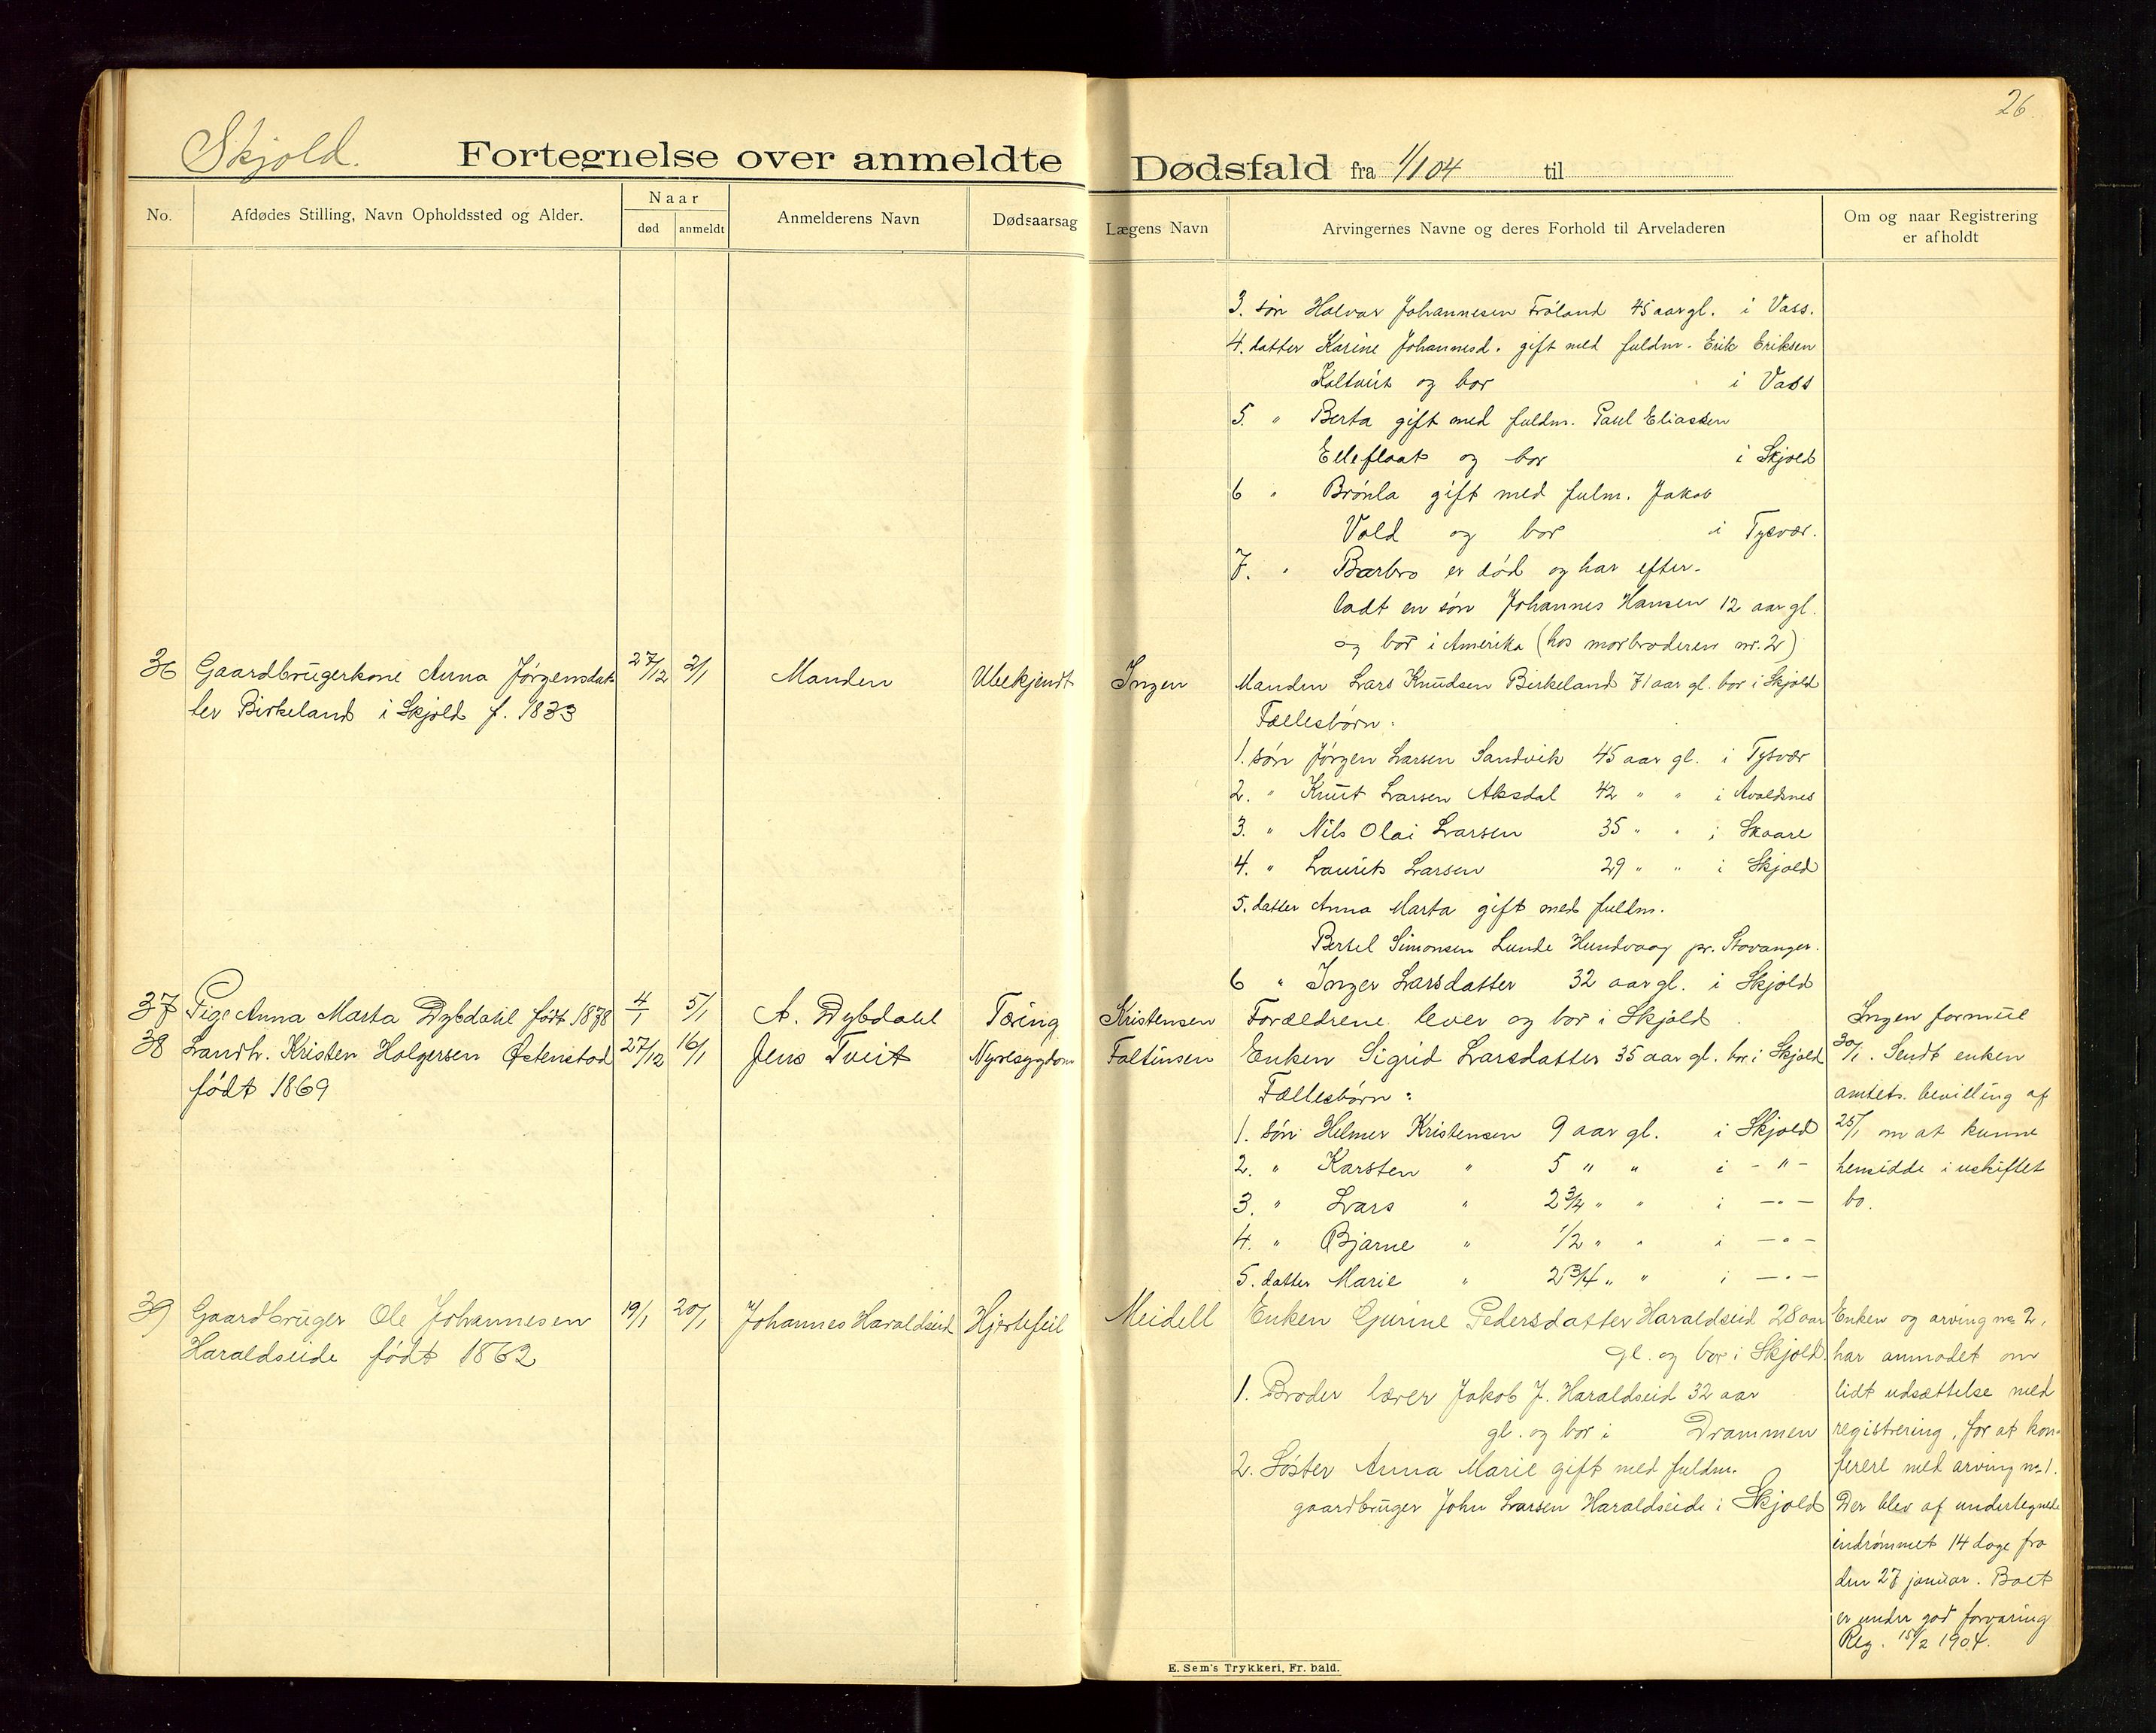 26.
Skjold.
Fortegnelse over anmeldte Dødsfald fra 1/1 04 til
No.
Afdødes Stilling, Navn Opholdssted og Alder.
Naar
død
anmeldt
Anmelderens Navn
Dødsaarsag
Lægens Navn
Arvingernes Navne og deres Forhold til Arveladeren
Om og naar Registrering
er afholdt
3. søn Halvar Johannesen Frøland 45 aar gl. i Vass.
4. datter Karine Johannesd. gift med fuldm. Erik Eriksen
Koltveit og bor i Vass
5. " Berta gift med fuldm. Paul Eliassen
Elleflaat og bor i Skjold
6 " Brønla gift med fulm. Jakob
Vold og bor i Tysvær.
7. " Barbro er død og har efter-
ladt en søn Johannes Hansen 12 aar gl.
og bor i Amerika (hos morbroderen nr. 2)
36 Gaardbrugerkone Anna Jørgensdat 27/12 2/1 Manden Ubekjendt Ingen Manden Lars Knudsen Birkeland 71 aar gl. bor i Skjold
ter Birkeland i Skjold f. 1833
Fællesbørn:
1. søn Jørgen Larsen Sandvik 45 aar gl. i Tysvær
2. " Knut Larsen Aksdal 42 " " i Avaldsnes
3. " Nils Olai Larsen 35 " " i Skaare
4. " Laurits Larsen 29 " " i Skjold
5. datter Anna Marta gift med fuldm.
Bertel Simonsen Lunde Hundvaag pr. Stavanger.
6 " Inger Larsdatter 32 aar gl. i Skjold
37 Pige Anna Marta Dybdahl født 1878 4/1 5/1 A. Dybdahl Tæring Kristensen Forældrene lever og bor i Skjold Ingen formue
38 Landh. Kristen Holgersen Østenstad 27/12 16/1 Jens Tveit Nyresygdom Faltinsen Enken Sigrid Larsdatter 35 aar gl. bor i Skjold 30/1. Sendt enken
født 1869 Fællesbørn: amtets bevilling af
1. søn Helmer Kristensen 9 aar gl. i Skjold 25/1 om at kunne
2. " Karsten " 5 " " i - " - hensidde i uskiftet
3. " Lars " 2 3/4 " " i - " - bo.
4. " Bjarne " 1/2 " " i - " -
5. datter Marie " 2 3/4 " " i - " -
39 Gaardbruger Ole Johannesen 19/1 20/1 Johannes Haraldseid Hjertefeil Meidell Enken Gurine Pedersdatter Haraldseid 28 aar Enken og arving no 2,
Haraldseide født 1862 gl. og bor i Skjold. har anmodet om
1. Broder lærer Jakob J. Haraldseid 32 aar lidt udsættelse med
gl. og bor i Drammen registrering, for at kon-
2. Søster Anna Marie gift med fuldm. ferere med arving no 1.
gaardbruger John Larsen Haraldseide i Skjold Der blev af undertegnede
indrømmet 14 dage fra
den 27 januar. Boet
er under god forvaring
Reg. 15/2 1904.
E. Sem's Trykkeri, Fr. hald.